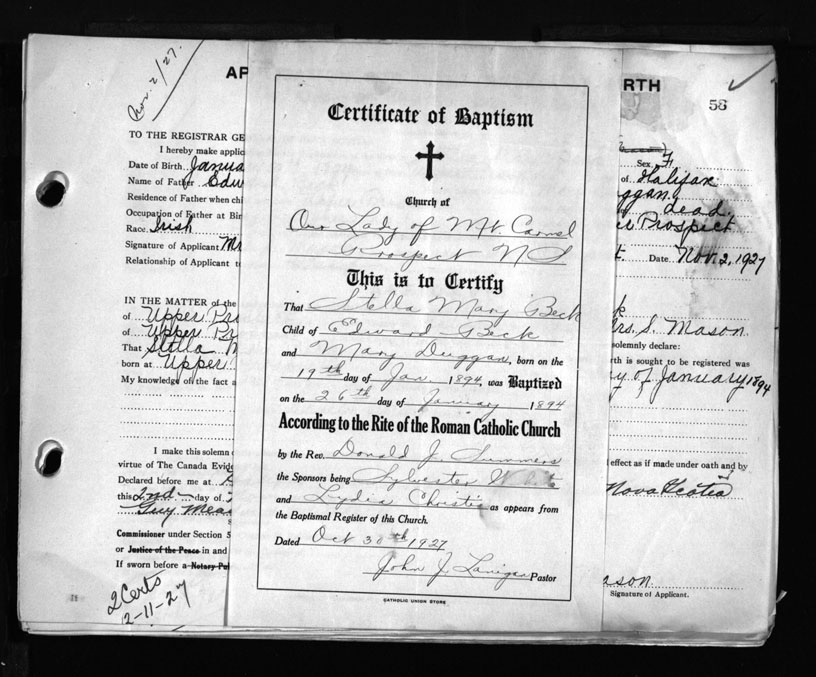 Nov. 2/27.
AP
RTH
56
TO THE REGISTRAR GE
I hereby make applic
Date of Birth Janua
Name of Father Edw
Residence of Father when chi
Occupation of Father at Bir
Race. Irish
Signature of Applicant Mr
Relationship of Applicant to
IN THE MATTER of the
of Upper Pro
of Upper Pr
That Stella M
born at Upper
My knowledge of the fact a
I make this solemn
virtue of The Canada Evid
Declared before me at
this 2nd day of
Guy Mea
Commissioner under Section 5
or Justice of the Peace in and
If sworn before a Notary Pu
2 Certs
2-11-27
Certificate of Baptism
Church of
Our Lady of Mt Carmel
Prospect N S
This is to Certify
That Stella Mary Beck
Child of Edward Beck
and Mary Duggan, born on the
19th day of Jan. 1894, was Baptized
on the 26th day of January 1894
According to the Rite of the Roman Catholic Church
by the Rev. Donald J. Summers
the Sponsors being Sylvester White
and Lydia Christie as appears from
the Baptismal Register of this Church.
Dated Oct 30th 1927
John J. Lanigan Pastor
CATHOLIC UNION STORE
Sex F
of Halifax
ggan
dead
Prospect
Date Nov. 2, 1927
k
rs. S. Mason
solemnly declare:
rth is sought to be registered was
y of January 1894
effect as if made under oath and by
Nova Scotia
ason
Signature of Applicant.